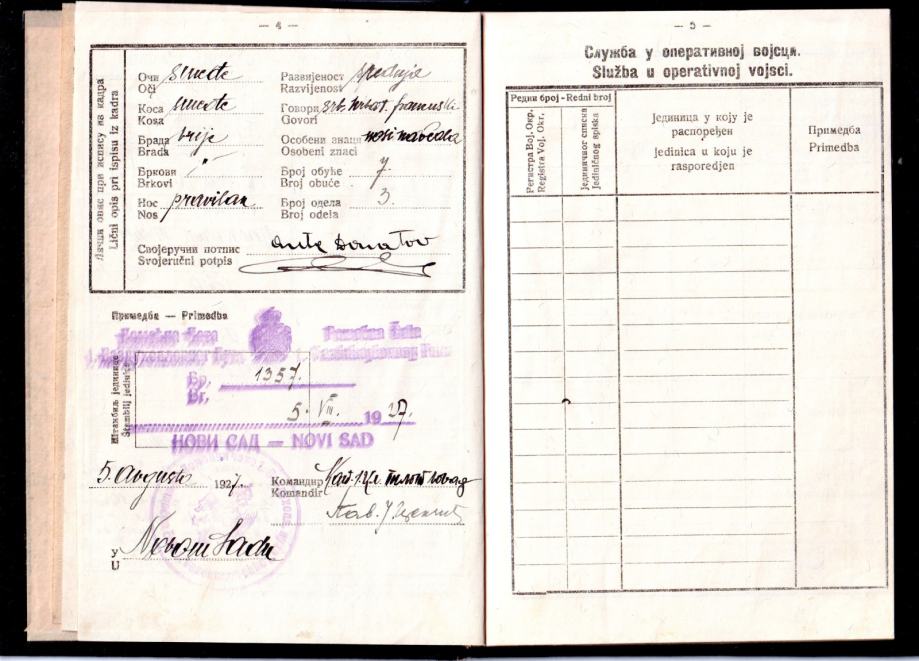 — 4 —
Лични опис при испису из кадра
Lični opis pri ispisu iz kadra
Очи smeđe
Oči
Коса smeđe
Kosa
Брада brije
Brada
Бркови „
Brkovi
Нос pravilan
Nos
Развијеност srednje
Razvijenost
Говори srb. hrvat. francuski
Govori
Особени знаци
Osobeni znaci
Број обуће 7
Broj obuće
Број одела 3.
Broj odela
Својеручни потпис Ante Donatov
Svojeručni potpis
Примедба — Primedba
Штамбиљ јединице
Štambilj jedinice
Бр. 1357.
Br.
5. VIII. 1927.
НОВИ САД — NOVI SAD
5. Avgusta 1927.
Командир
Komandir
У Novom Sadu
U
— 5 —
Служба у оперативној војсци.
Služba u operativnoj vojsci.
Редни број - Redni broj
Регистра Вој. Окр.
Registra Voj. Okr.
Јединичног списка
Jediničnog spiska
Јединица у коју је
распоређен
Jedinica u koju je
rasporedjen
Примедба
Primedba